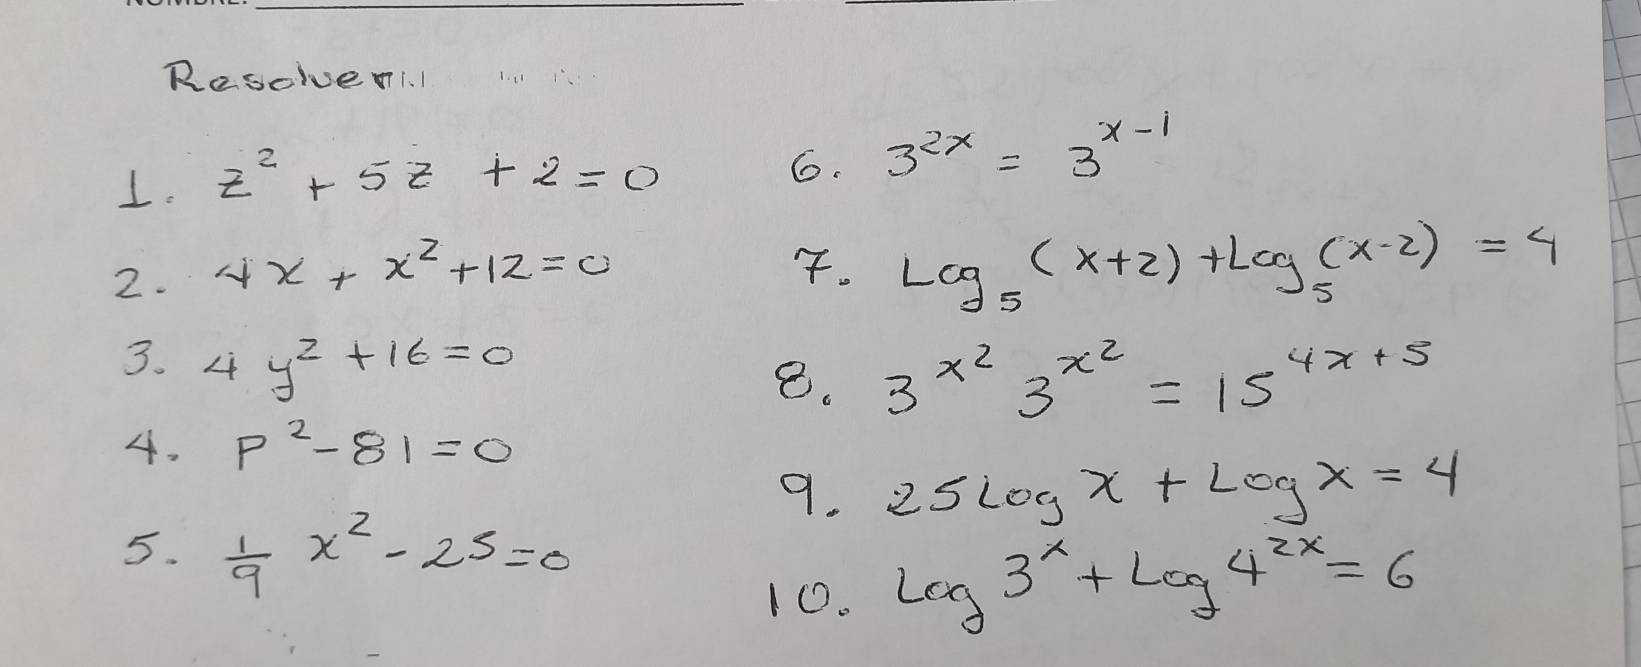 NOMBRE:
Resolver
1. z² + 5z + 2 = 0
2. 4x + x² + 12 = 0
3. 4y² + 16 = 0
4. P² - 81 = 0
5. 1/9 x² - 25 = 0
6. 3^{2x} = 3^{x-1}
7. Log₅ (x+2) + Log₅ (x-2) = 4
8. 3^{x²} 3^{x²} = 15^{4x+5}
9. 25 Log x + Log x = 4
10. Log 3^{x} + Log 4^{2x} = 6